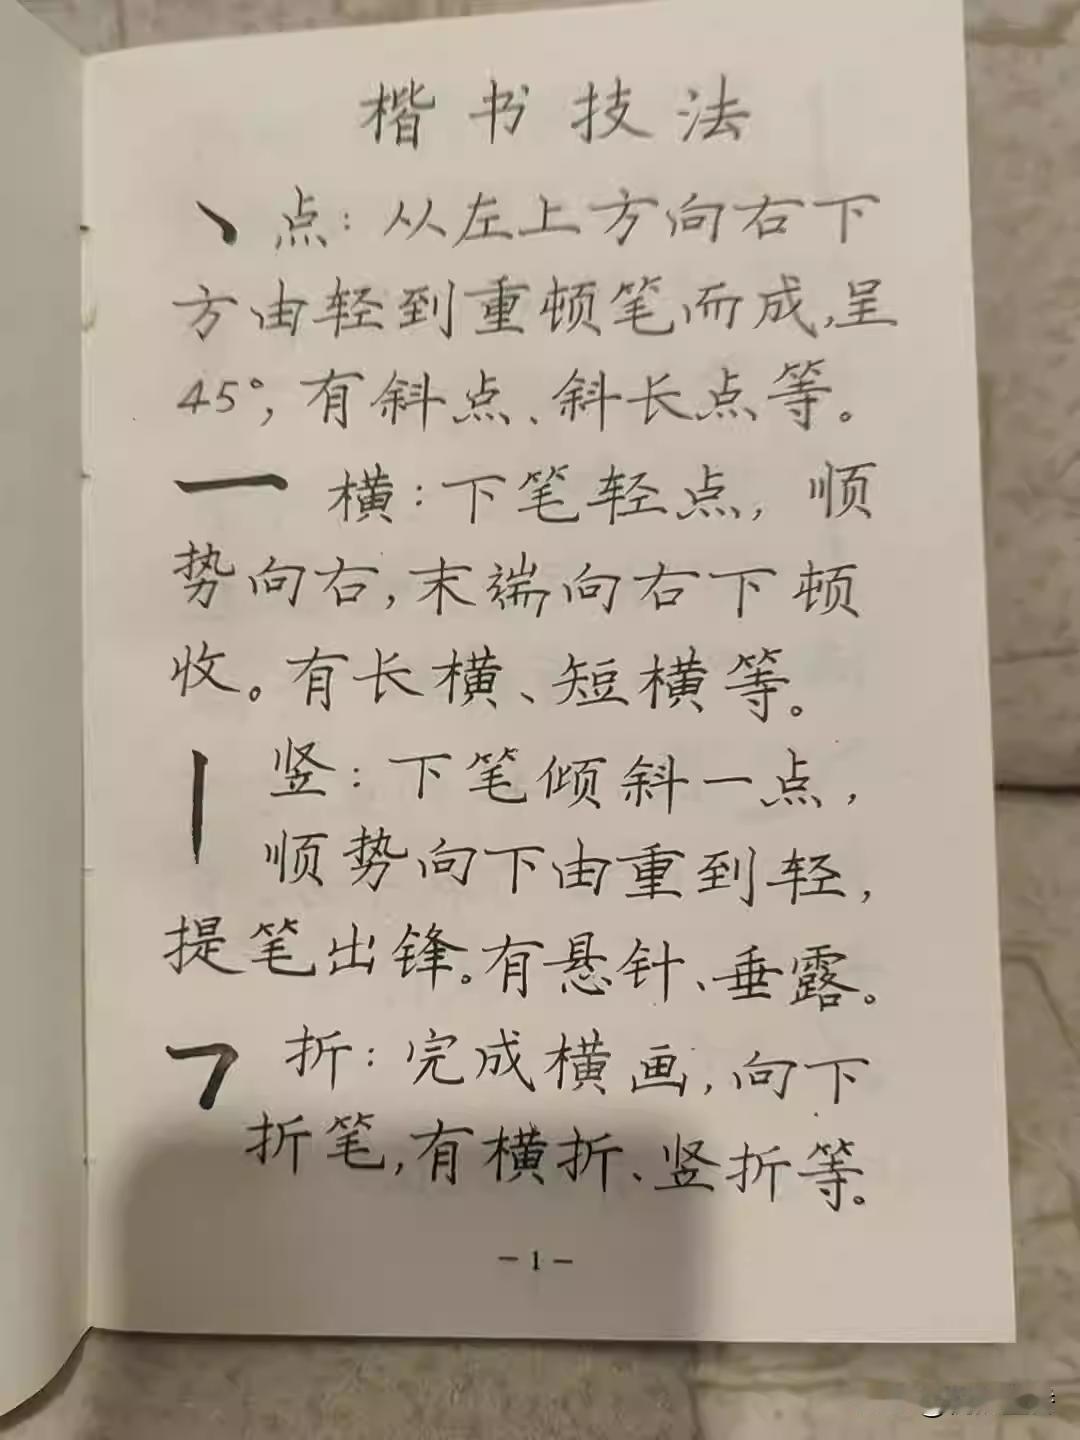 楷书技法
丶 点：从左上方向右下
方由轻到重顿笔而成,呈
45°, 有斜点、斜长点等。
一 横：下笔轻点, 顺
势向右, 末端向右下顿
收。有长横、短横等。
丨 竖：下笔倾斜一点,
顺势向下由重到轻,
提笔出锋。有悬针、垂露。
㇕ 折：完成横画, 向下
折笔, 有横折、竖折等。
-1-